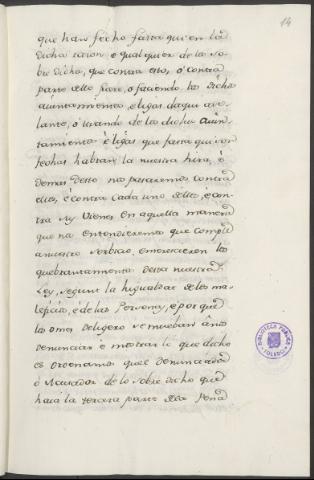 14
que han fecho fasta qui en la
dicha racon, e qualquier de lo so-
bre dicho, que contra esto, ó contra
parte dello fuere, o faciendo los dichos
aiuntamientos, e ligas daqui ave-
lante, ó usando de los dichos aiun-
tamientos è ligas que fasta qui son
fechas habran la nuestra hira, è
demas desto nos pasaremos contra
ellos, è contra cada uno dellos, è con-
tra sus vienes en aquella manera
que na entendieremos que cumple
a nuestro serbicio, e merecieren los
quebrantamiento desta nuestra
Ley, segunt la higualdad de los ma-
leficios, è de las Personas, e porque
los omes de ligero se muevan à nos
denunciar è mostrar lo que dicho
es ordenamos quel denunciador
ò Acusador de lo sobre dicho que
haia la tercera parte de la pena
BIBLIOTECA PUBLICA
TOLEDO